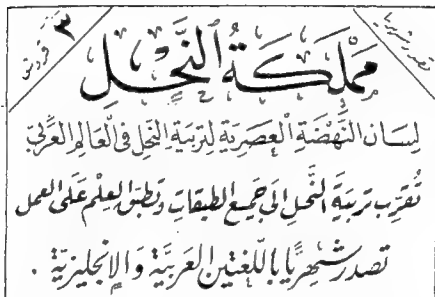 تصدر شهريا
٣ قروش
مملكة النحل
لِسان النَّهضَة العَصرية لتربية النحل في العالم العربي
تُقرِّب تربيَة النَّحل إلى جَميع الطبقات وتطبق العِلم عَلى العمل
تصدر شهريًا باللغتين العربيَّة والإنجليزيَّة .